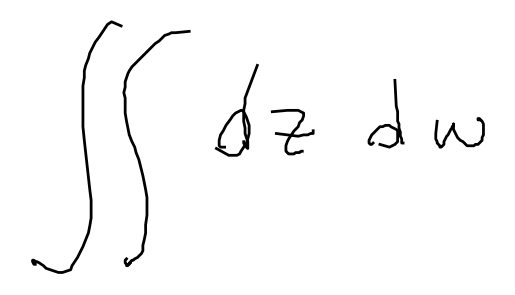 ∬ dz dw